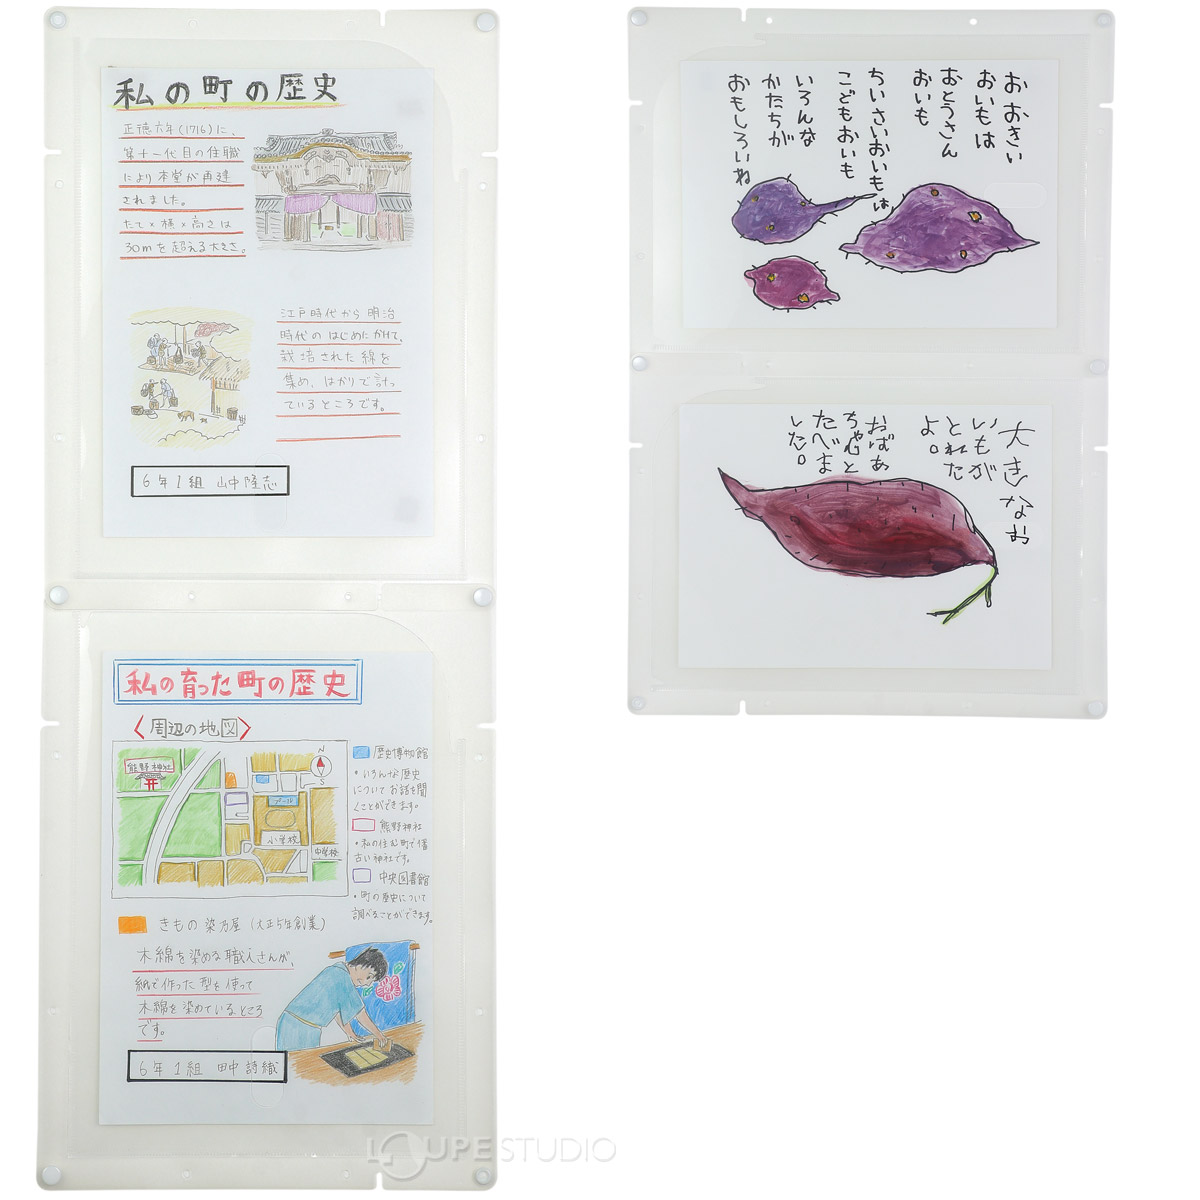 私の町の歴史
正徳六年(1716)に、
第十一代目の住職
により本堂が再建
されました。
たて×横×高さは
30mを超える大きさ。
江戸時代から明治
時代のはじめにかけて、
栽培された綿を
集め、はかりで計っ
ているところです。
6年1組 山中隆志
私の育った町の歴史
周辺の地図
熊野神社
N
S
プール
小学校
中学校
歴史博物館
・いろんな歴史
についてお話を聞
くことができます。
熊野神社
・私の住む町で1番
古い神社です。
中央図書館
・町の歴史について
調べることができます。
きもの染乃屋(大正5年創業)
木綿を染める職人さんが、
紙で作った型を使って
木綿を染めているところ
です。
6年1組 田中詩織
おおきい
おいもは
おとうさん
おいも
ちいさいおいもは
こどもおいも
いろんな
かたちが
おもしろいね
大きなお
いもが
とれた
よ。
おばあ
ちゃんと
たべま
した。
LOUPE STUDIO